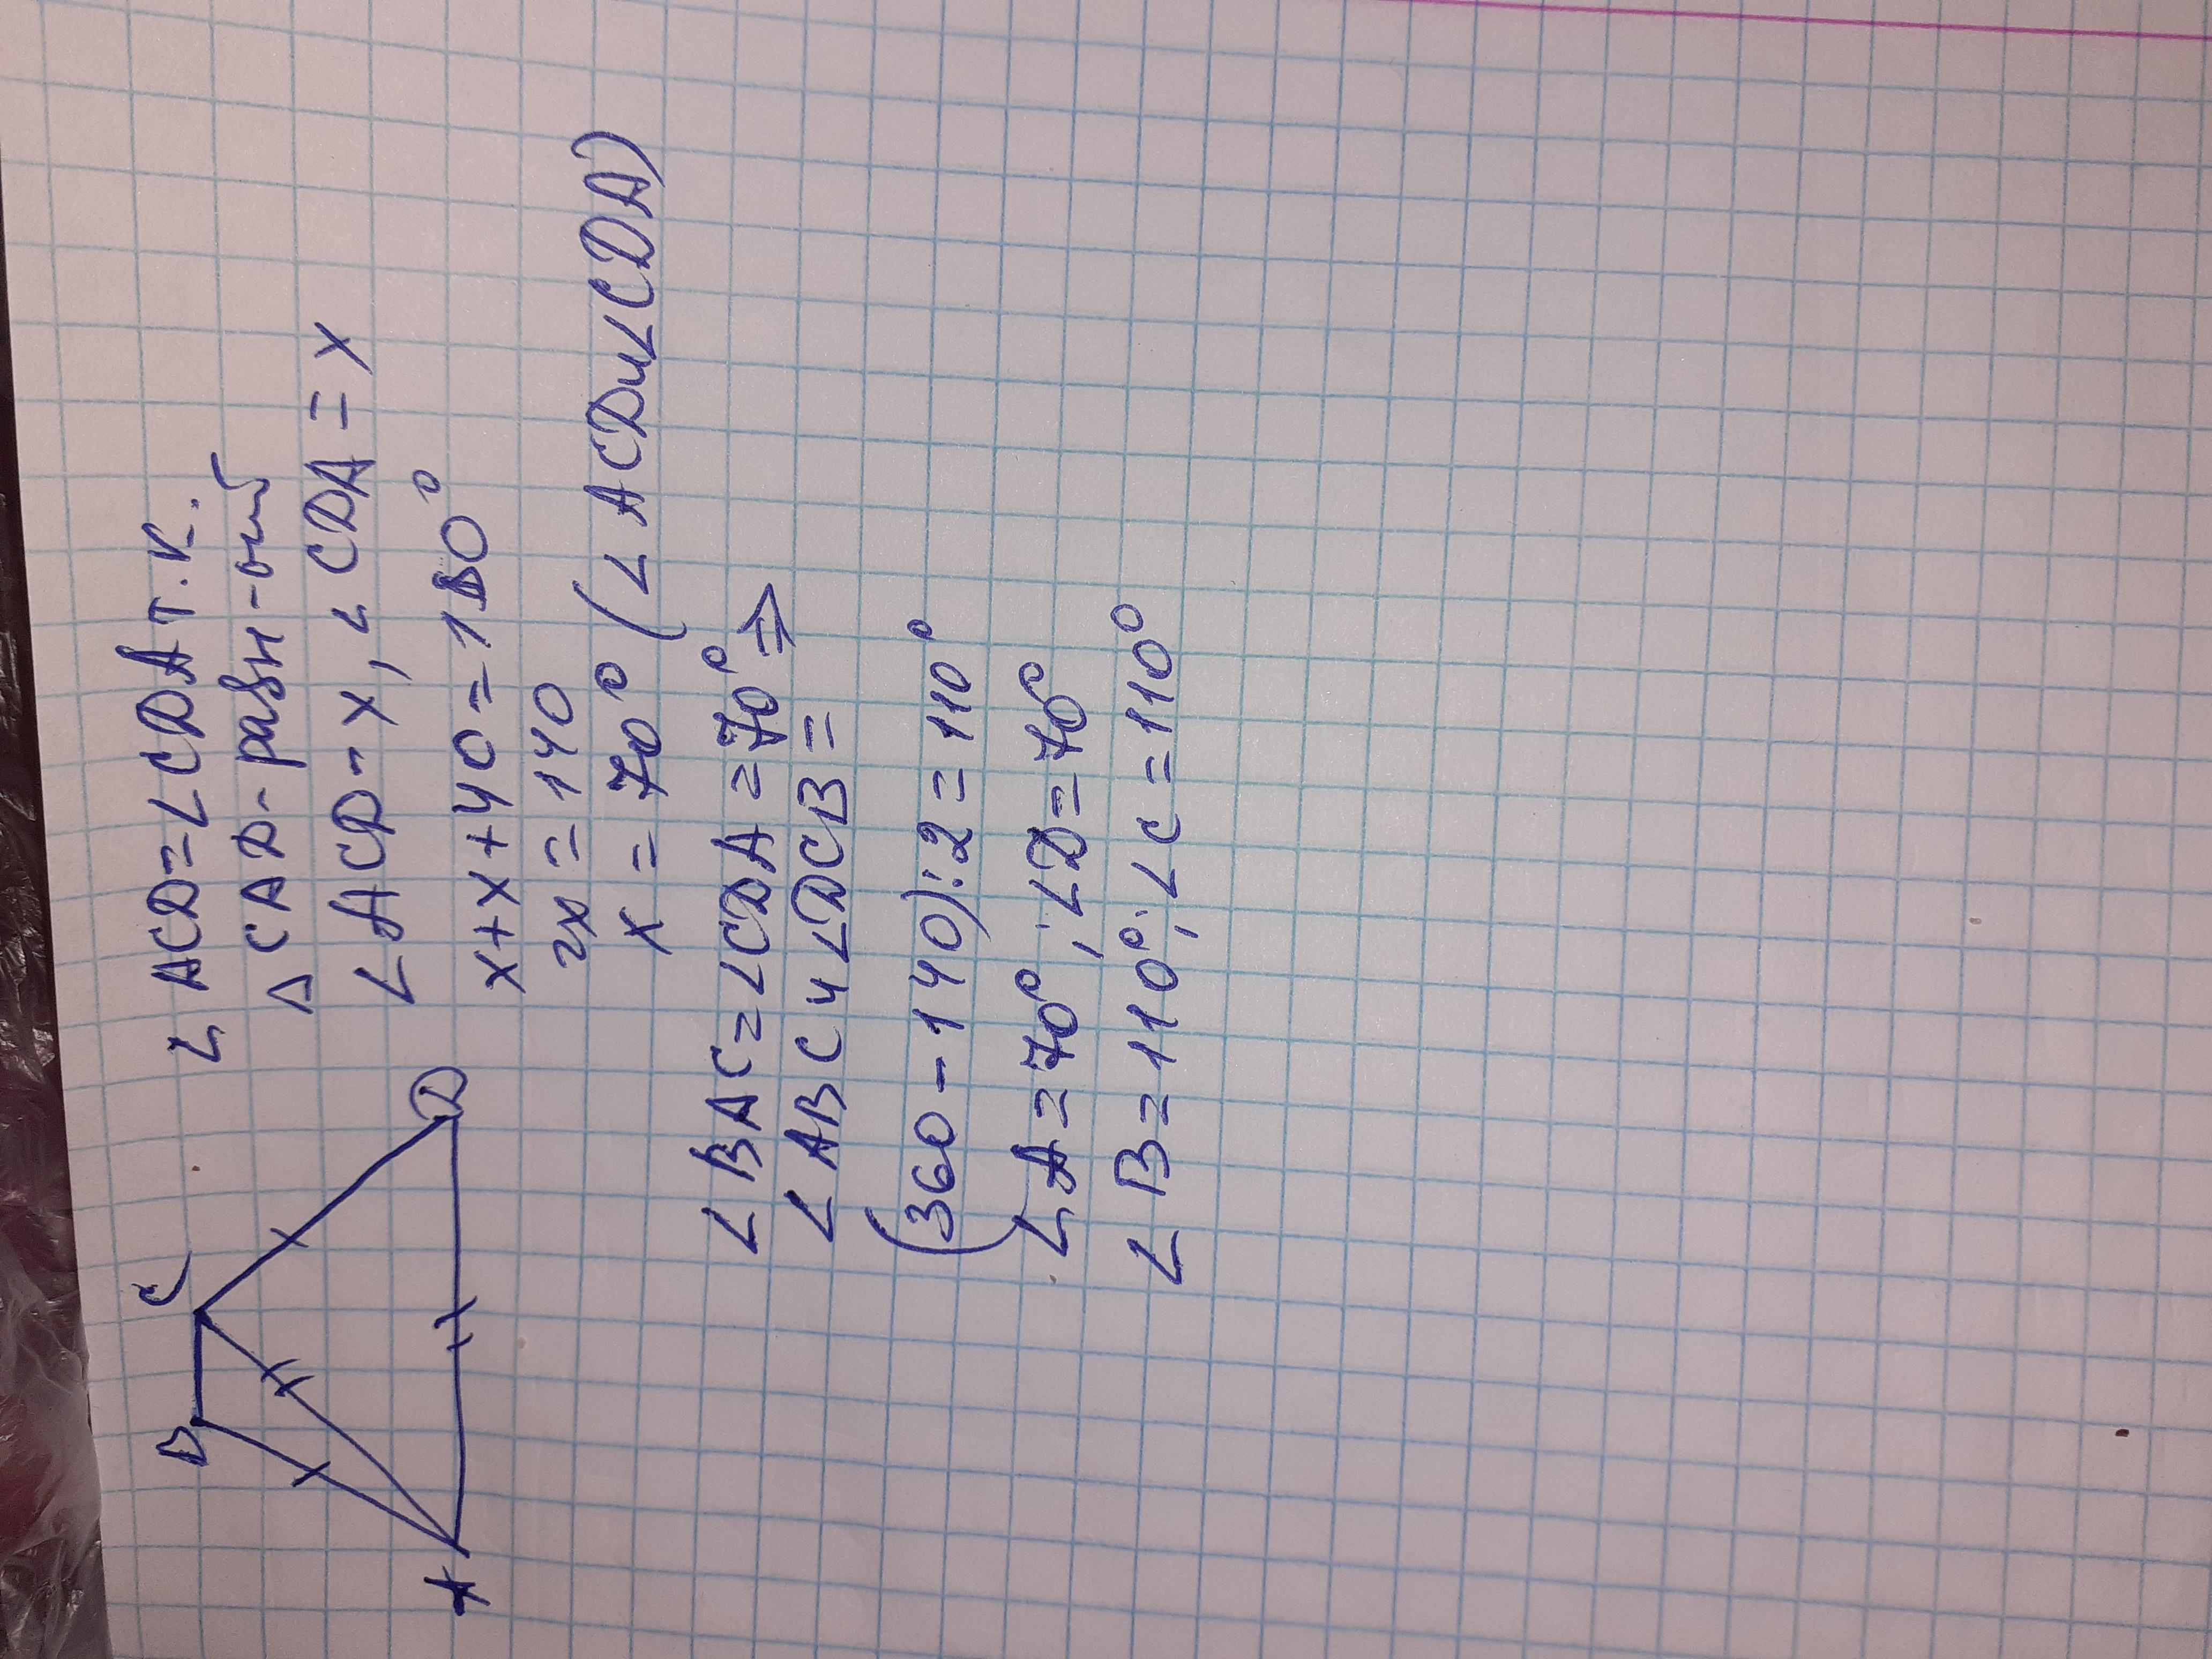 B C
A D
∠ ACD = ∠ CDA т.к.
Δ CAD - равн-ый
∠ ACD - x, ∠ CDA = x
x + x + 40 = 180°
2x = 140
x = 70° (∠ ACD и ∠ CDA)
∠ BAC = ∠ CDA = 70° ⇒
∠ ABC и ∠ DCB =
(360 - 140) : 2 = 110°
∠ A = 70°; ∠ D = 70°
∠ B = 110°; ∠ C = 110°